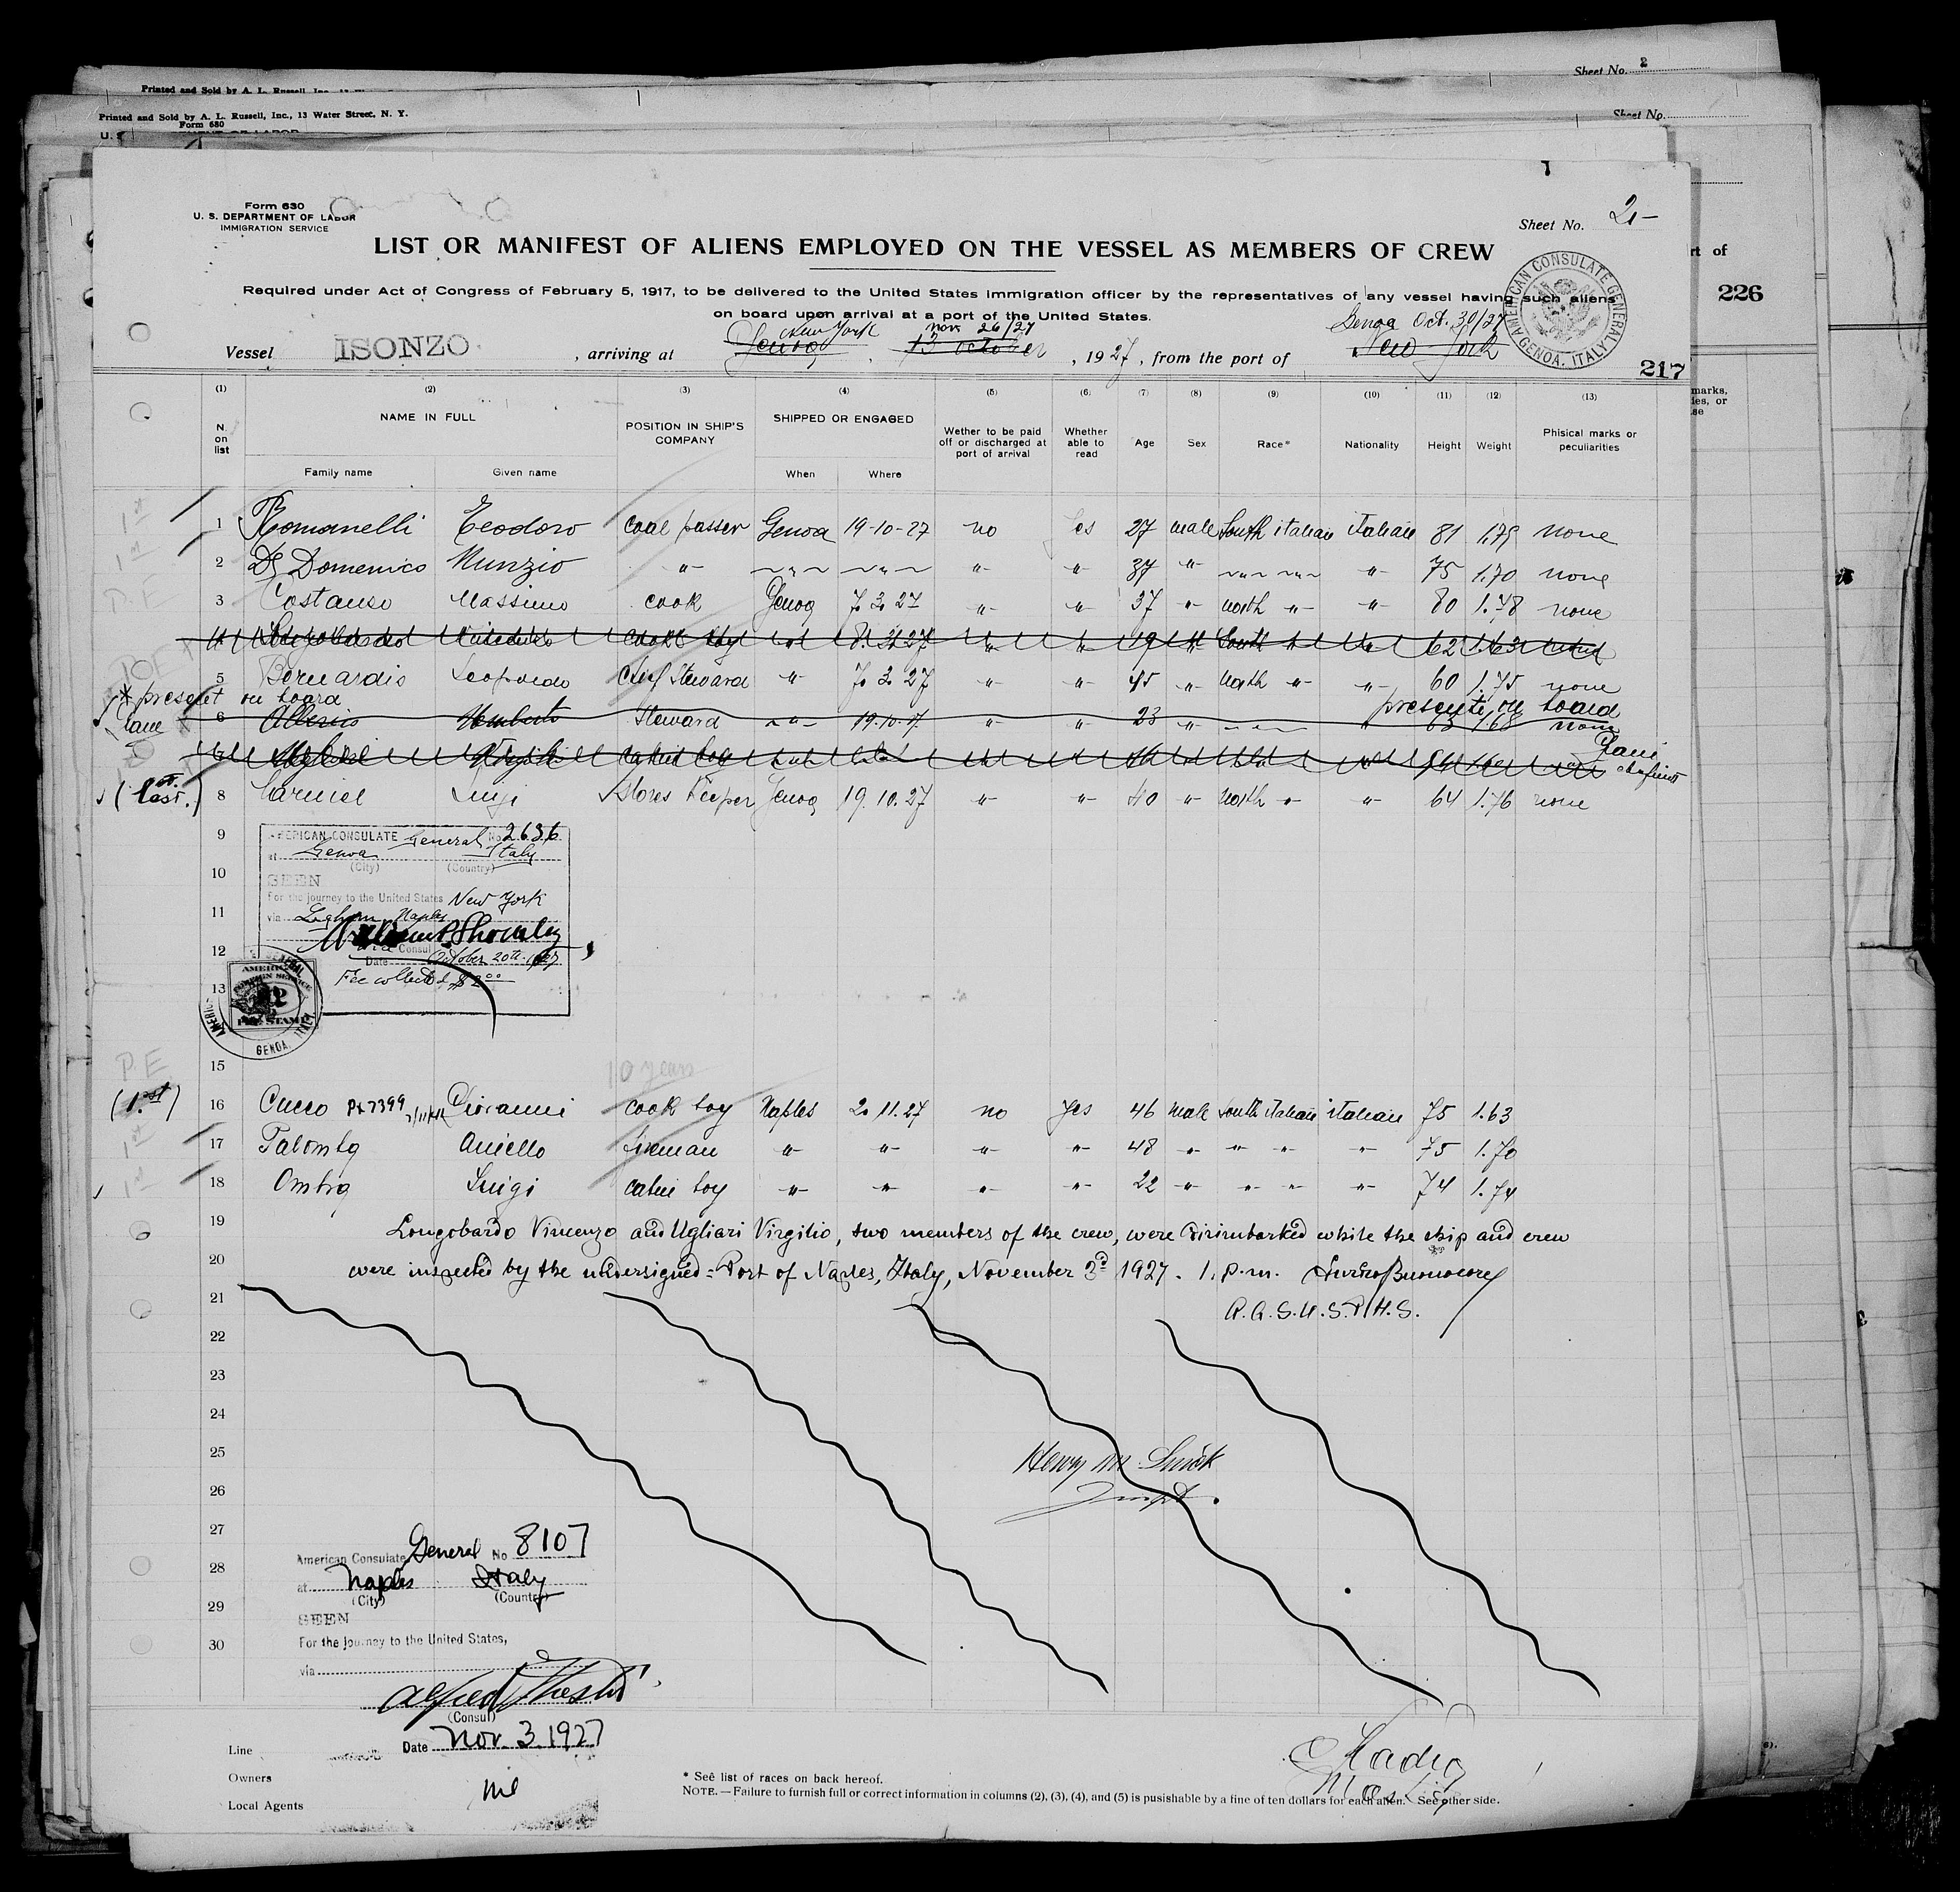 Sheet No. 2
Printed and Sold by A. L. Russell, Inc.,
Printed and Sold by A. L. Russell, Inc., 13 Water Street, N. Y.
Form 680
Sheet No.
rt of
226
marks,
ies, or
se
Form 630
U. S. DEPARTMENT OF LABOR
IMMIGRATION SERVICE
Sheet No. 2-
LIST OR MANIFEST OF ALIENS EMPLOYED ON THE VESSEL AS MEMBERS OF CREW
Required under Act of Congress of February 5, 1917, to be delivered to the United States immigration officer by the representatives of any vessel having such aliens
on board upon arrival at a port of the United States.
AMERICAN CONSULATE GENERAL GENOA, ITALY
New York nov. 26/27 Genoa Oct. 30/27
Vessel ISONZO , arriving at Genoa , 13 october , 1927, from the port of New York
217
(1) (2) (3) (4) (5) (6) (7) (8) (9) (10) (11) (12) (13)
N. on list NAME IN FULL Family name Given name POSITION IN SHIP'S COMPANY SHIPPED OR ENGAGED When Where Wether to be paid off or discharged at port of arrival Whether able to read Age Sex Race* Nationality Height Weight Phisical marks or peculiarities
1st 1 Romanelli Teodoro coal passer Genoa 19-10-27 no yes 27 male South italian italian 81 1.79 none
1st 2 De Domenico Nunzio " " " " " 37 " " " " 75 1.70 none
P.E 3 Costanso Massimo cook Genoa 7. 3. 27 " " 37 " north " " 80 1.78 none
4 cook boy " 8. 3. 27 " " 19 " South " " 62 1.63
5 Bernardis Leopoldo Chief Steward " 7. 3. 27 " " 45 " north " " 60 1.75 none
* present on board present on board
6 Alberio Umberto Steward " 19.10.27 23 " " " 63 1.68 none
7 cabin boy
(1st.) 8 Luigi Stores Keeper Genoa 19.10.27 " " 40 " north " " 64 1.76 none
9
10
11
12
13
AMERICAN CONSULATE General No 2636
at Genoa Italy
(City) (Country)
SEEN
For the journey to the United States New York
via Leghorn Naples
Consul
Date October 20th 1927
Fee collected $2.00
AMERICAN FOREIGN SERVICE
FEE STAMP
GENOA,
P.E 15 10 years
(1.st) 16 Cucco Px 7399 Giovanni cook boy Naples 2. 11. 27 no yes 46 male South italian italian 75 1.63
1st 17 Palomba Aniello fireman " " " " 48 " " " " 75 1.70
1st 18 Ombra Luigi cabin boy " " " " 22 " " " " 74 1.74
19 Longobardo Vincenzo and Ugliari Virgilio, two members of the crew, were disimbarked while the ship and crew
20 were inspected by the undersigned = Port of Naples, Italy, November 3d 1927. 1. p.m.
21 A. A. S. U. S. P. H. S.
22
23
24
25 Henry M.
26 Inspt.
27
28
29
30
American Consulate General No 8107
at Naples Italy
(City) (Country)
SEEN
For the journey to the United States,
via
Alfred
(Consul)
Date Nov. 3. 1927
Line
Owners
Local Agents
* See list of races on back hereof.
NOTE.—Failure to furnish full or correct information in columns (2), (3), (4), and (5) is pusishable by a fine of ten dollars for each alien. See other side.